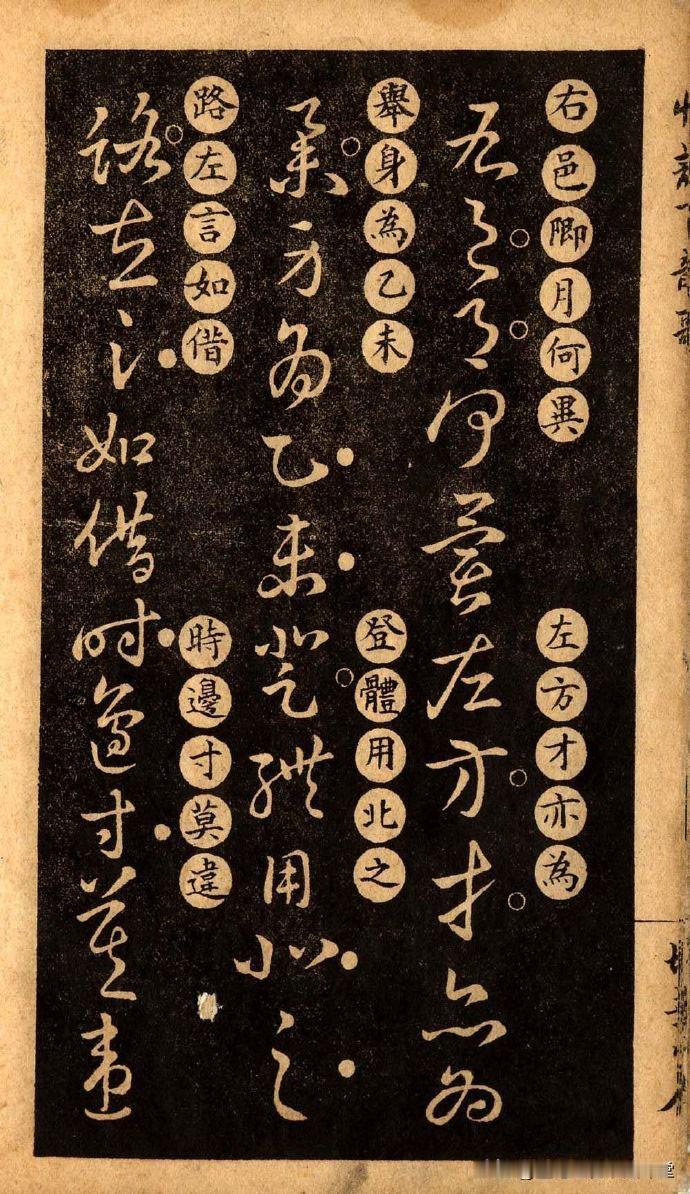 右邑卿月何異
左方才亦為
右邑月何異左方才亦為
舉身為乙未
登體用北之
舉身為乙未登體用北之
路左言如借
時邊寸莫違
路左言如借時邊寸莫違